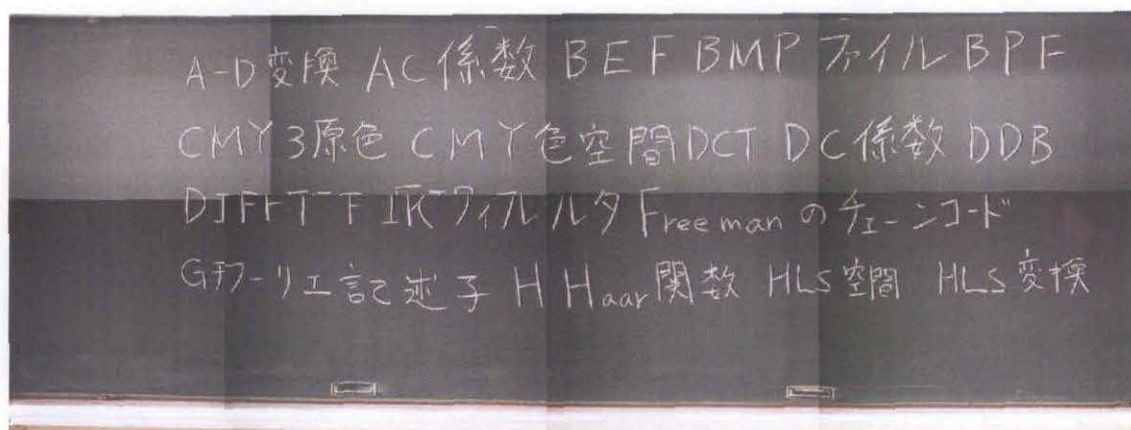 A-D変換 AC係数 BEF BMPファイル BPF
CMY3原色 CMY色空間 DCT DC係数 DDB
フィルルタ Freemanのチェーンコード
Gフーリエ記述子 H Haar関数 HLS空間 HLS変換